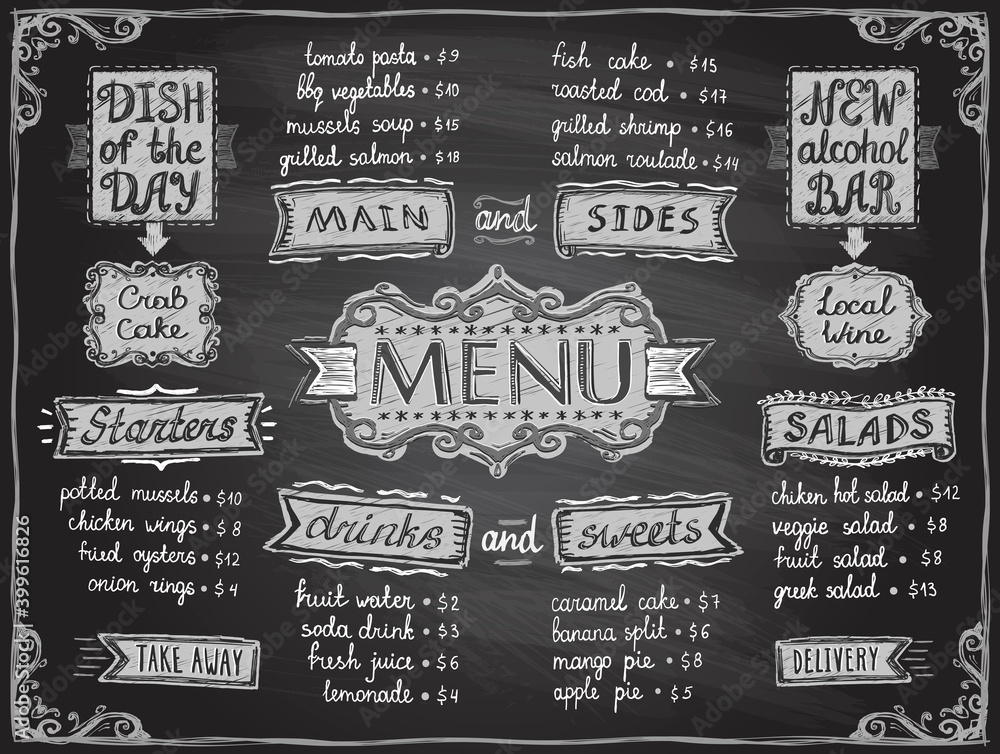 DISH
of the
DAY
Crab
Cake
tomato pasta • $9
bbq vegetables • $10
mussels soup • $15
grilled salmon • $18
MAIN and SIDES
fish cake • $15
roasted cod • $17
grilled shrimp • $16
salmon roulade • $14
NEW
alcohol
BAR
Local
Wine
MENU
Starters
potted mussels • $10
chicken wings • $8
fried oysters • $12
onion rings • $4
TAKE AWAY
drinks and sweets
fruit water • $2
soda drink • $3
fresh juice • $6
lemonade • $4
caramel cake • $7
banana split • $6
mango pie • $8
apple pie • $5
SALADS
chiken hot salad • $12
veggie salad • $8
fruit salad • $8
greek salad • $13
DELIVERY
Adobe Stock | #399616826